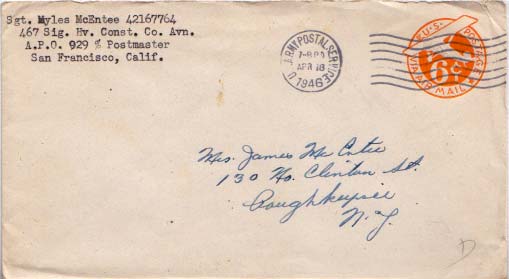 Sgt. Myles McEntee 42167764
467 Sig. Hv. Const. Co. Avn.
A.P.O. 929 % Postmaster
San Francisco, Calif.
U.S. ARMY POSTAL SERVICE
APR 18
1946
U.S. POSTAGE
6¢
VIA AIR MAIL
Mrs. James McEntee
130 No. Clinton St.
Poughkeepsie
N.Y.
D